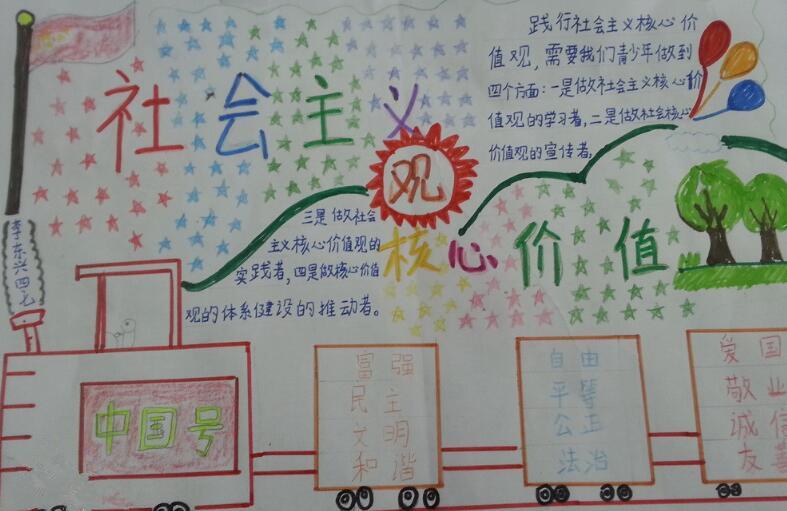 社会主义
观
核心价值
践行社会主义核心价
值观，需要我们青少年做到
四个方面：一是做社会主义核心价
值观的学习者，二是做社会核心
价值观的宣传者，
三是做社会
主义核心价值观的
实践者，四是做核心价值
观的体系建设的推动者。
李东兴四七
中国号
富强
民主
文明
和谐
自由
平等
公正
法治
爱国
敬业
诚信
友善